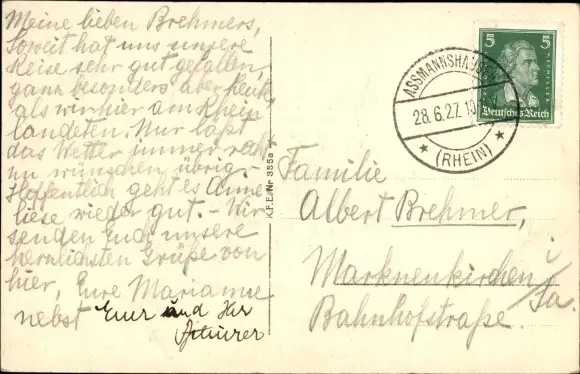 Meine lieben Brehmers,
Soweit hat uns unsere
Reise sehr gut gefallen,
ganz besonders aber heute,
als wir hier am Rhein
landeten. Nur läßt
das Wetter immer recht
zu wünschen übrig.-
Hoffentlich geht es Anne-
liese wieder gut. - Wir
senden Euch unsere
herzlichsten Grüße von
hier, Eure Marianne
nebst Euer und Ihr
K.F.E. Nr 355a
ASSMANNSHAUSEN
28.6.27. 10
★ (RHEIN) ★
5 5
SCHILLER
Deutsches Reich
Familie
Albert Brehmer,
Marknenkirchen i/Sa.
Bahnhofstraße.